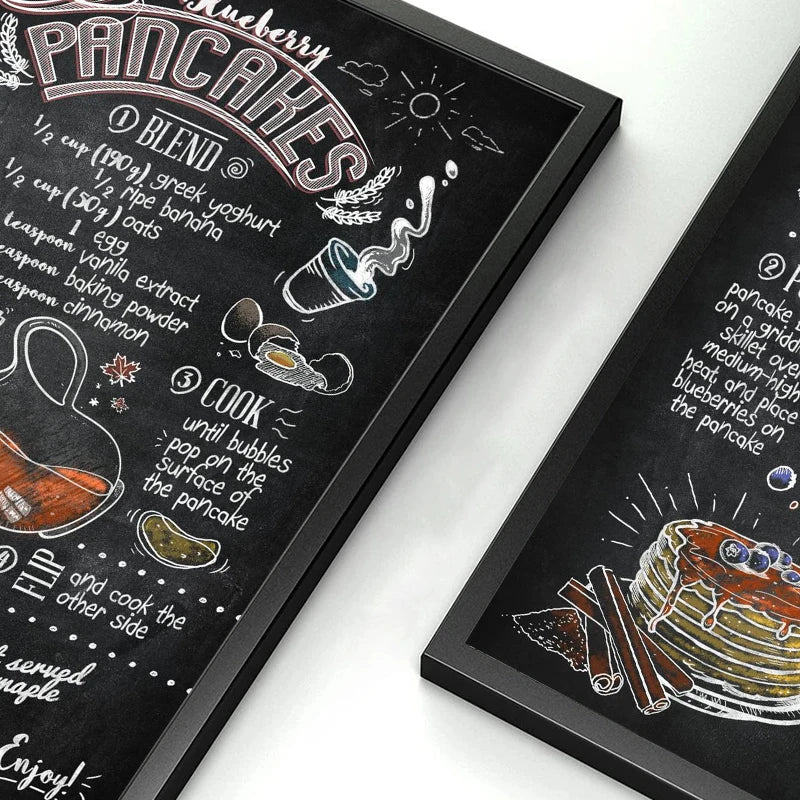 Blueberry
PANCAKES
1 BLEND
1/2 cup (190g) greek yoghurt
1/2 ripe banana
1/2 cup (50g) oats
1 egg
teaspoon vanila extract
teaspoon baking powder
teaspoon cinnamon
3 COOK
until bubbles
pop on the
surface of
the pancake
4 FLIP
and cook the
other side
served
maple
Enjoy!
2
pancake
on a griddle
skillet over
medium-high
heat and place
blueberries on
the pancake